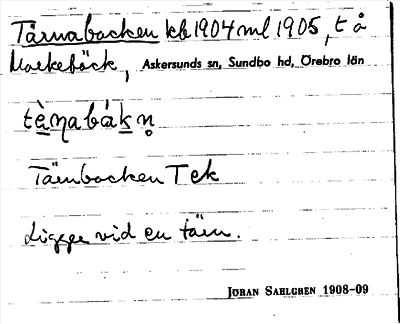 Tärnabacken kb 1904 ml 1905, t å
Markebäck, Askersunds sn, Sundbo hd, Örebro län
tè̱ŋabáḵn̥
Tärnbacken Tek
Ligger vid en tärn.
JÖRAN SAHLGREN 1908-09